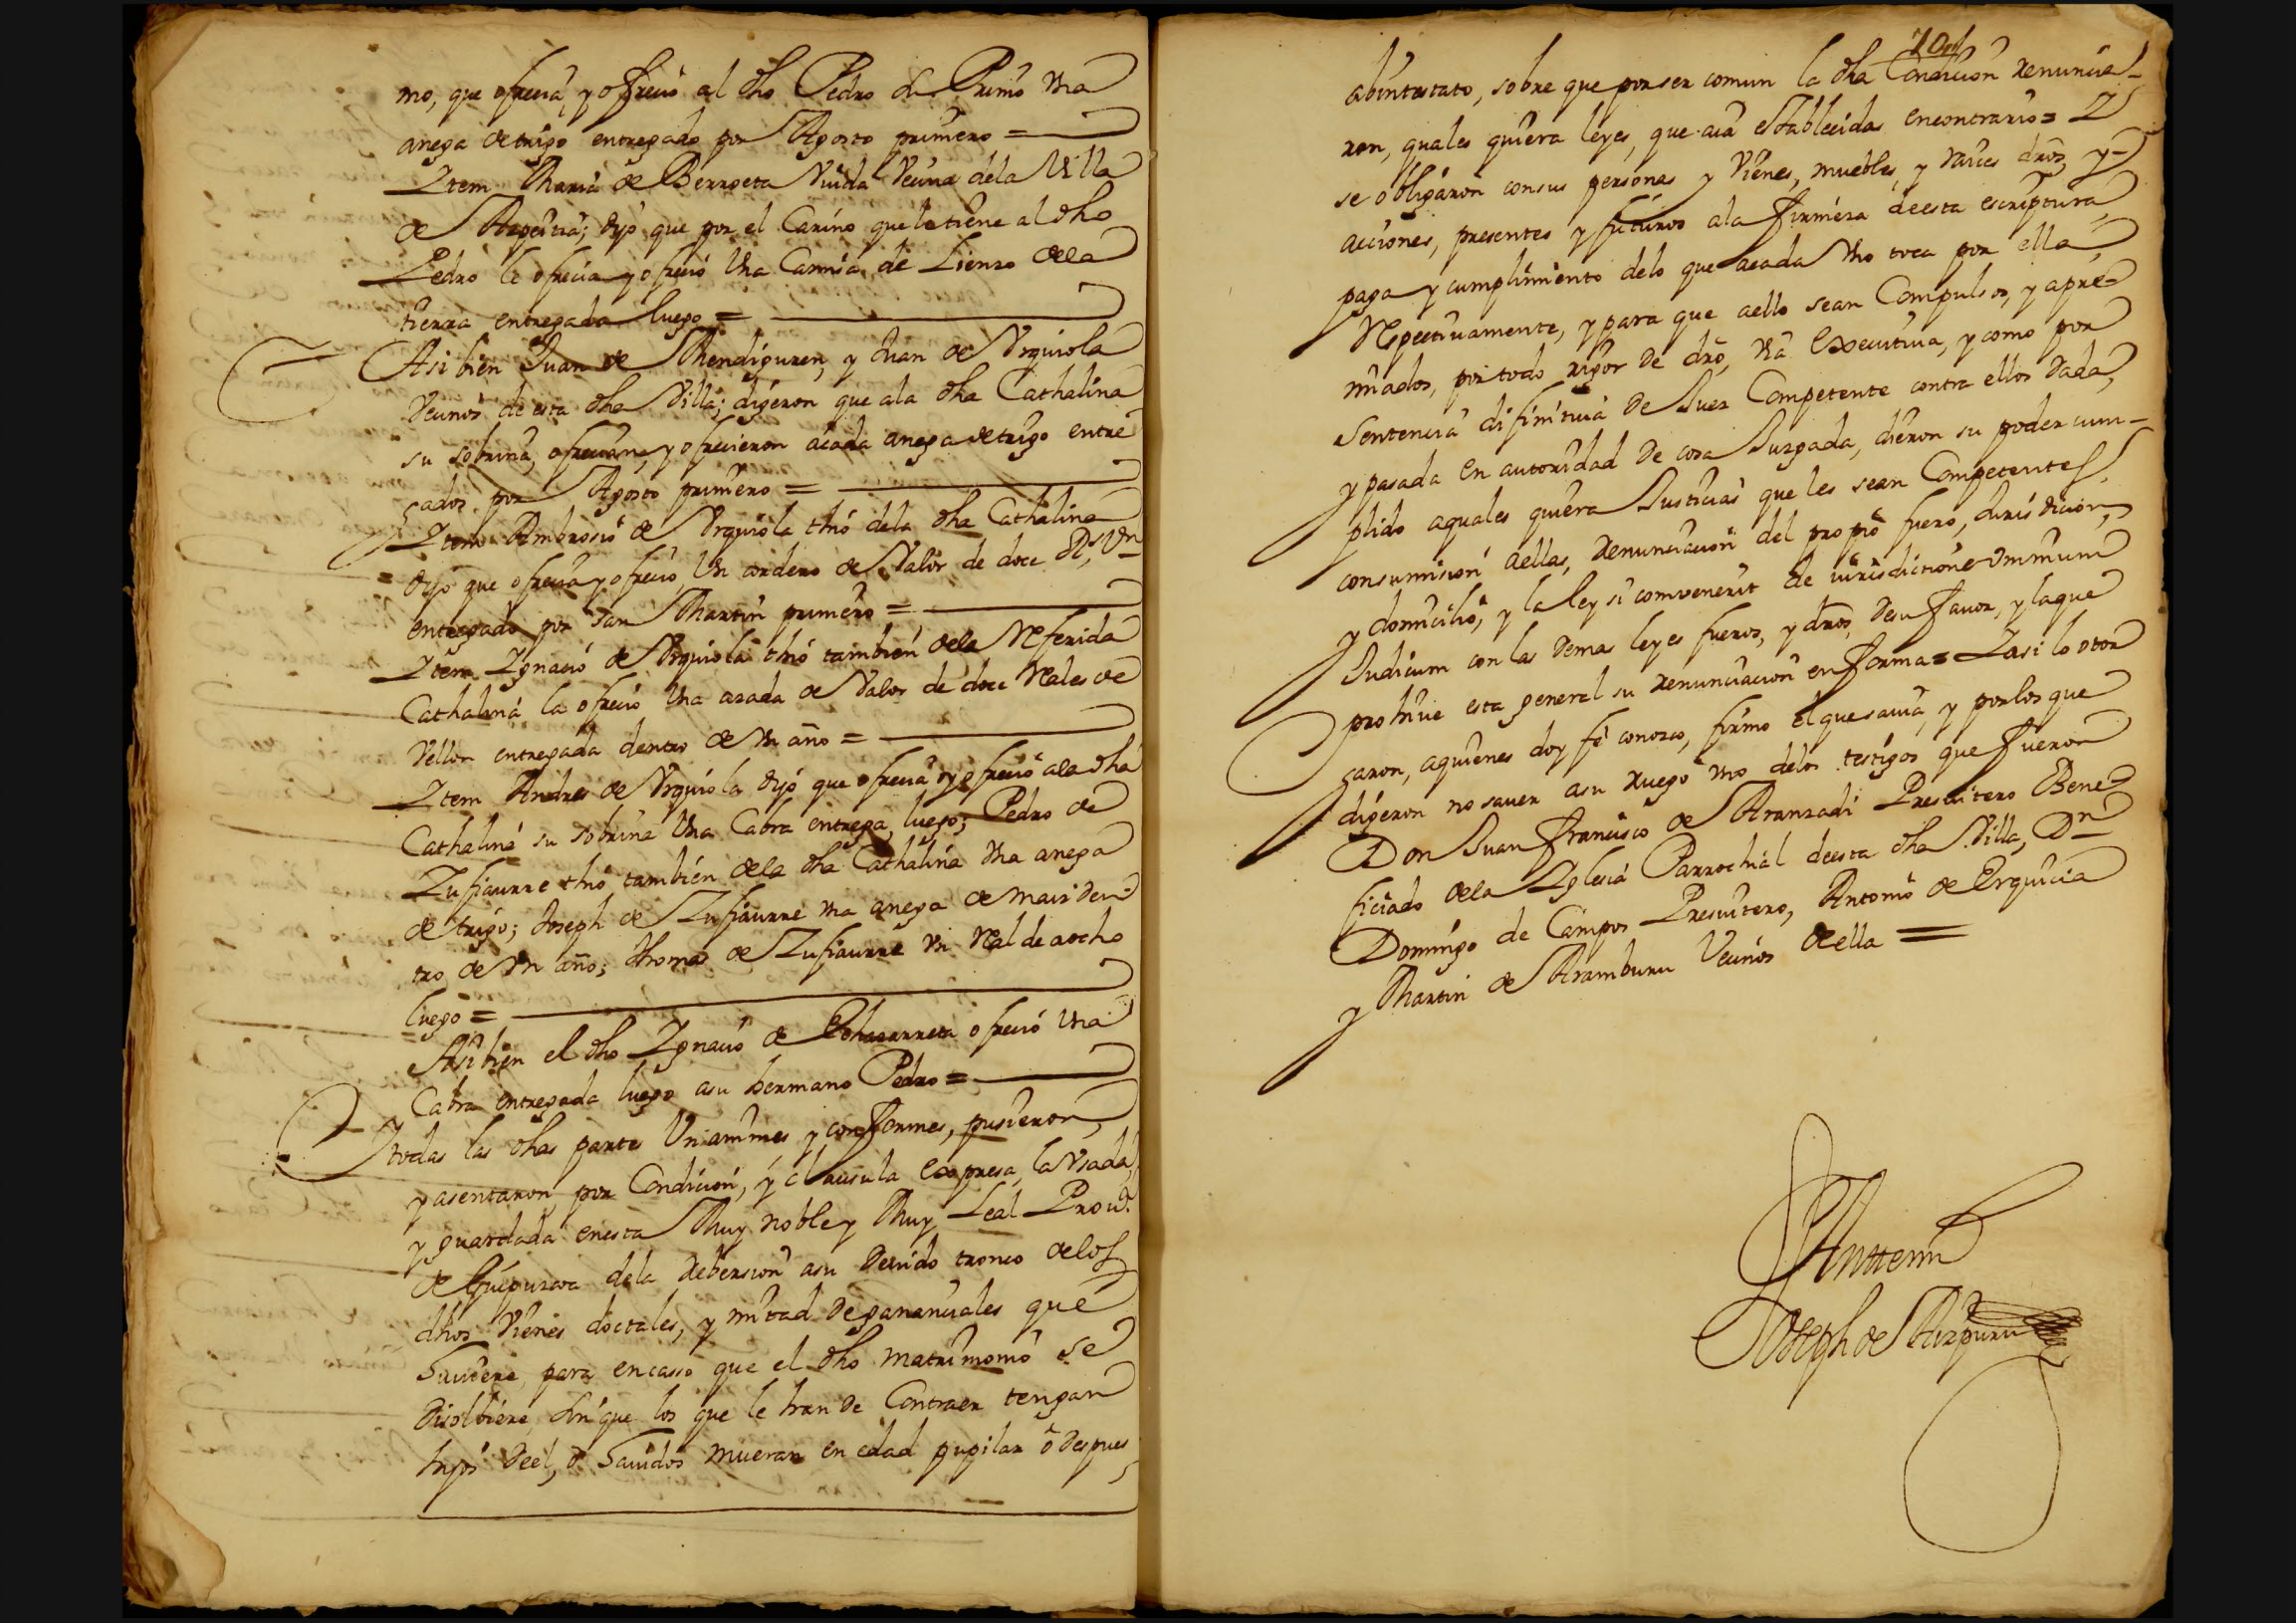 mo, que ofrecia, y ofrecio al dho Pedro su Primo Vna
anega de trigo entregado por Agosto primero =
Item Maria de Berroeta Viuda Vecina dela Villa
de Azpeitia; dijo que por el Carino que le tiene al dho
Pedro le ofrecia y ofrecio Vna Camisa de Lienzo dela
tierra entregada luego =
Asi bien Juan de Mendiguren, y Juan de Vrquiola
Vecinos de esta dha Villa; digeron que ala dha Cathalina
su sobrina, ofrecian, y ofrecieron acada anega de trigo entre
gados por Agosto primero =
Item Ambrosio de Vrquiola thio dela dha Cathalina
dijo que ofrecia y ofrecio, Vn cordero de Valor de doce Rs. Vn
entregado por San Martin primero =
Item Ignacio de Vrquiola thio tambien dela Referida
Cathalina la ofrecio Vna azada de Valor de doce Reales de
Vellon entregada dentro de Vn año =
Item Andres de Vrquiola dijo que ofrecia y ofrecio ala dha
Cathalina su sobrina Vna Cabra entrega luego; Pedro de
Zufiaurre thio tambien dela dha Cathalina Vna anega
de trigo; Joseph de Zufiaurre Vna anega de maiz den-
tro de Vn año; Thomas de Zufiaurre Vn Real de aocho
luego =
Asi bien el dho Ignacio de ofrecio Vna
Cabra entregada luego asu hermano Pedro =
Y todas las dhas partes Vnanimes, y conformes, pusieron,
y asentaron por Condicion, y clausula expresa, la Vsada,
y guardada enesta Muy noble y Muy Leal Prov.a
de Guipuzcoa dela Rebersion asu devido tronco delos
dhos Vienes doctales, y mitad de gananciales que
huviere, para encaso que el dho matrimonio se
disolbiere, sin que los que le han de Contraer tengan
hijos deel, o havidos mueran en edad pupilar o despues
701
abintestato, sobre que por ser comun la dha Condicion renuncia-
ron, quales quiera leyes, que aia establecidas encontrario = Y
se obligaron consus personas y Vienes, muebles, y raices dros, y
acciones, presentes y futuros ala firmeza deesta escriptura,
paga y cumplimiento delo que acada Vno toca por ella,
Respectivamente, y para que aello sean Compulsos, y apre-
miados, por todo rigor de dro, Via Executiva, y como por
Sentencia difinitiva de Juez Competente contra ellos dada,
y pasada en autoridad de cosa Juzgada, dieron su poder cum-
plido aquales quiera Justicias que les sean Competentes,
consumision aellas, renunciacion del propio fuero, Jurisdicion,
y domicilio, y la ley si combenerit de iurisdicione ommnium
Judicum con las demas leyes fueros, y dros, desu favor, y laque
prohive esta general su renunciacion en forma = Y asi lo otor
garon, aquienes doy fe conozco, firmo el que savia, y por los que
digeron no saver asu ruego Vno delos testigos que fueron
Don Juan Francisco de Aranzadi Presvitero Bene-
ficiado dela Iglesia Parrochial deesta dha Villa, Dn
Domingo de Campos Presvitero, Antonio de Erquicia
y Martin de Aramburu Vecinos de ella =
Ante mi
Joseph de Aizpuru